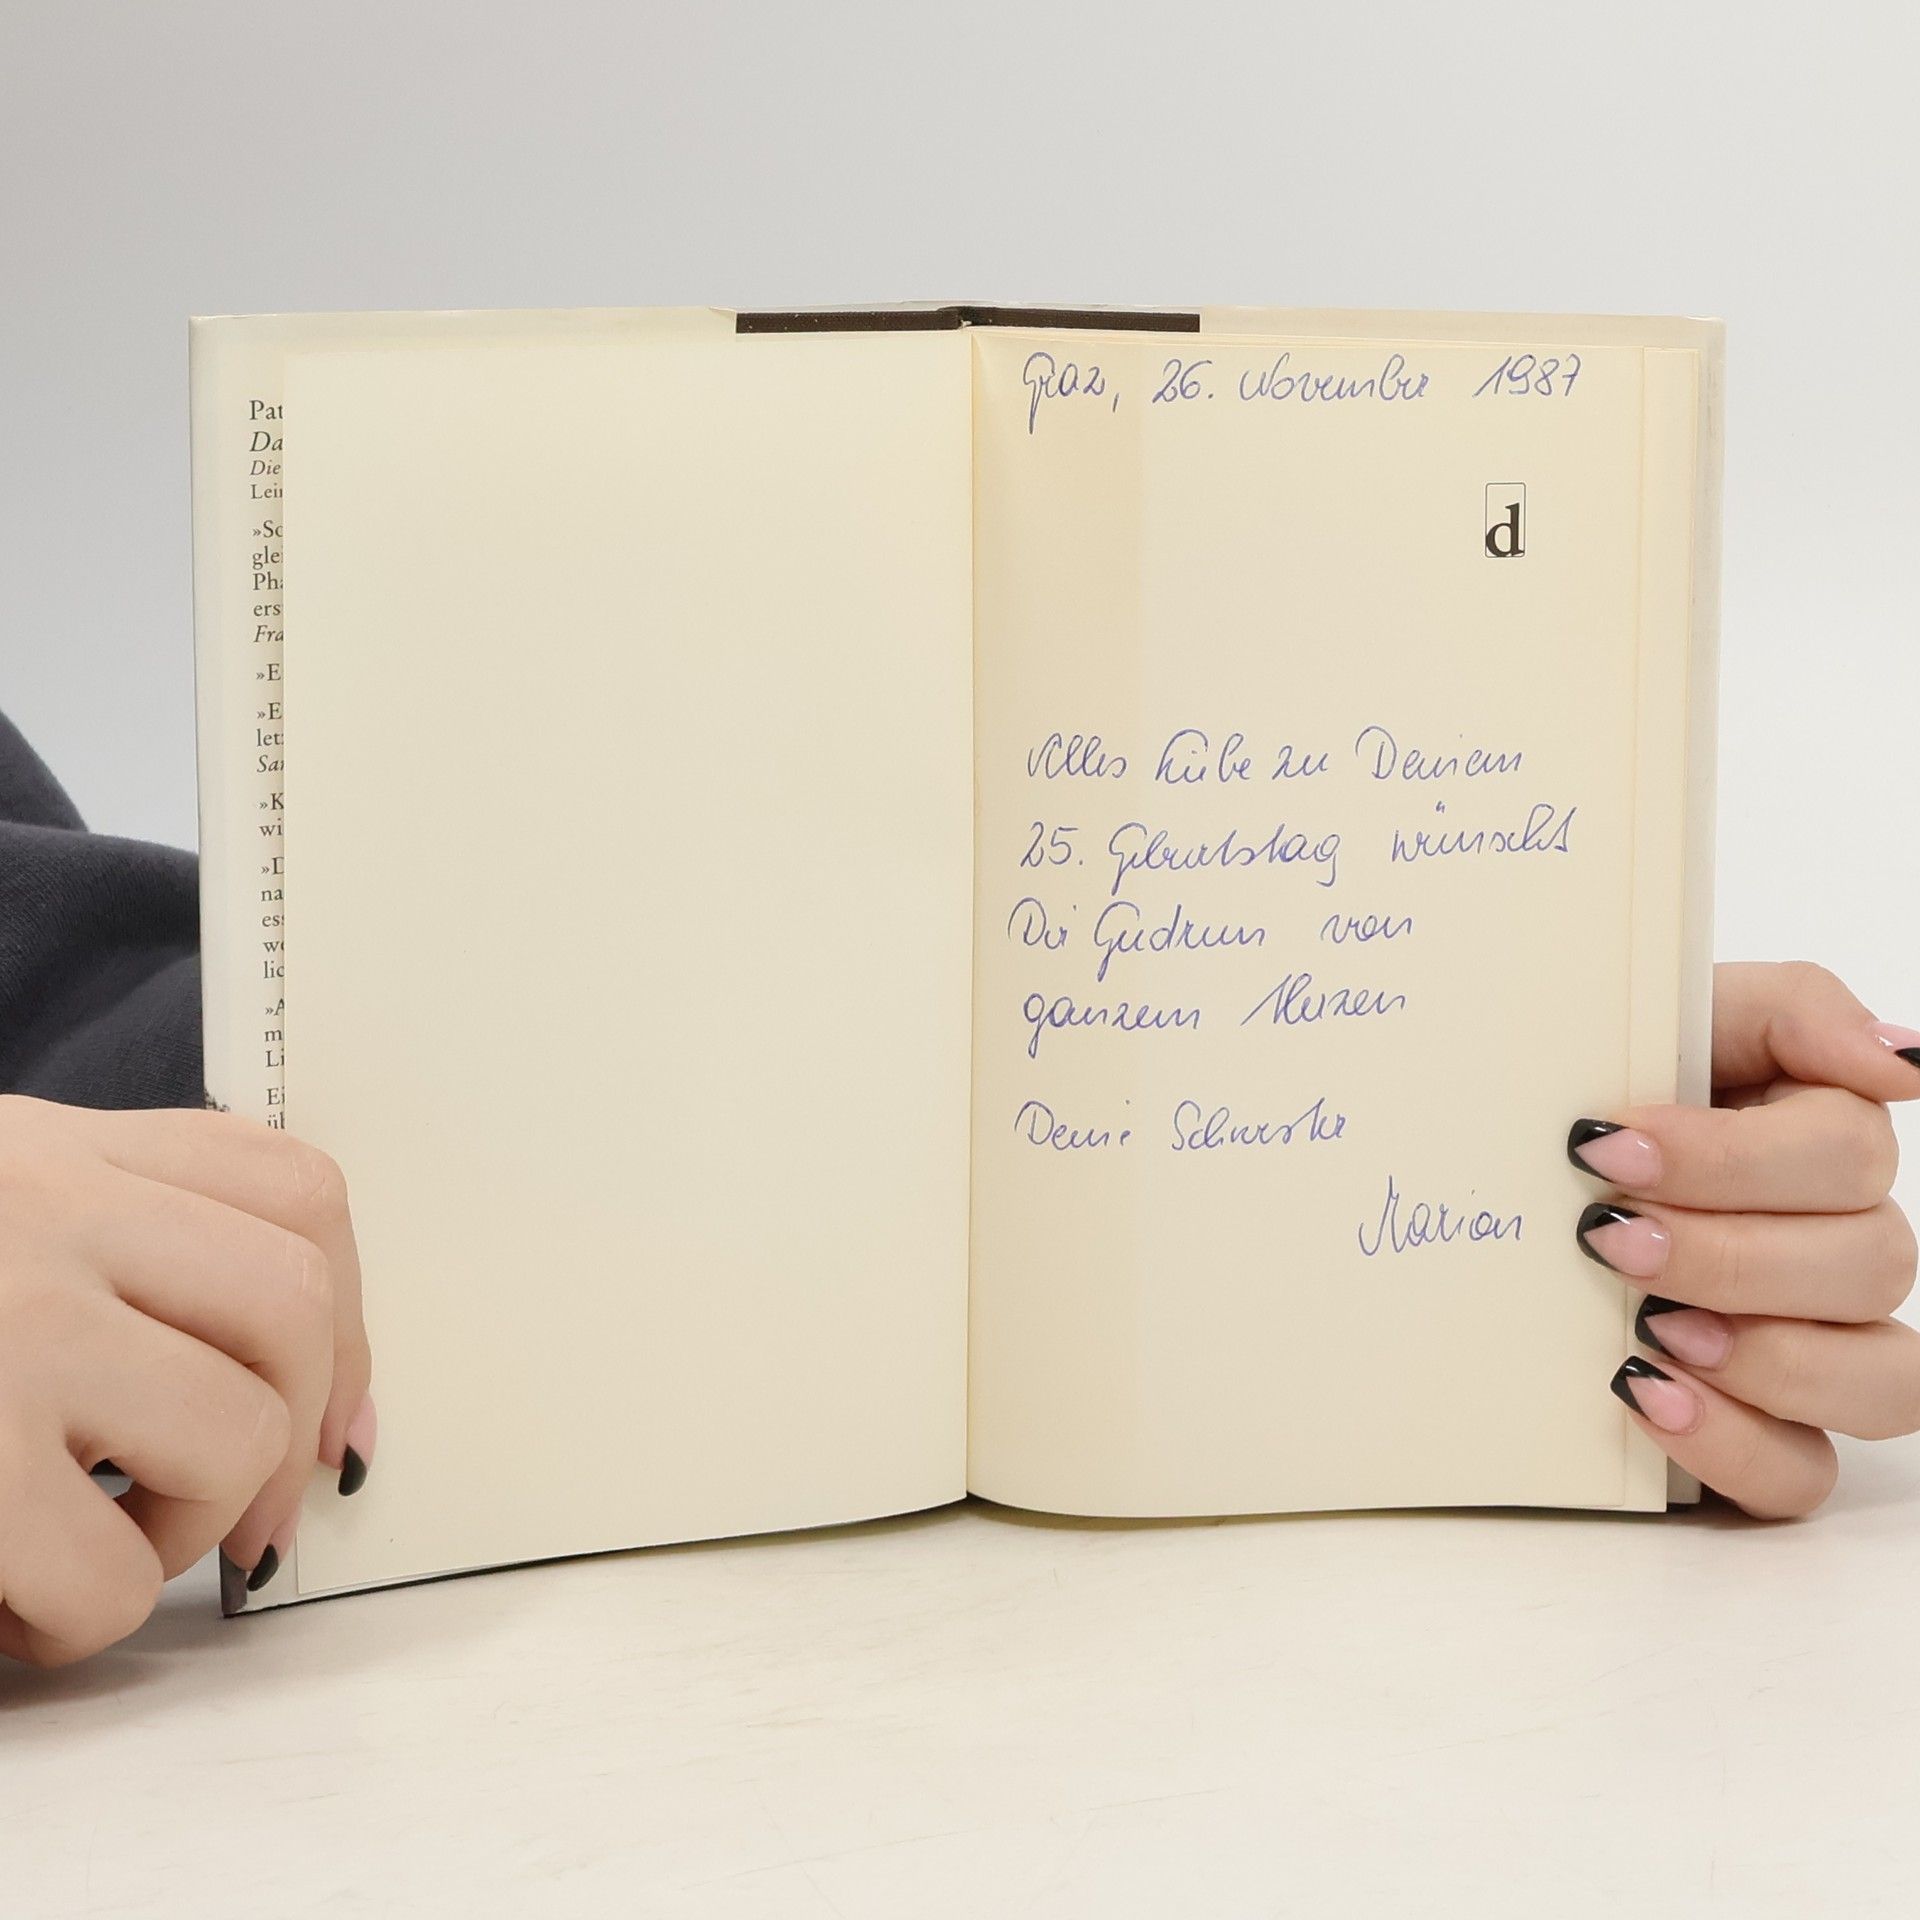 Pat
Da
Die
Lei
»So
glei
Pha
ers
Fra
»E
»E
let
San
»K
wi
»D
na
ess
we
lic
»A
m
Li
Ei
üb
Graz, 26. November 1987
d
Alles Liebe zu Deinem
25. Geburtstag wünscht
Dir Gudrun von
ganzem Herzen
Deine Schwester
Marion